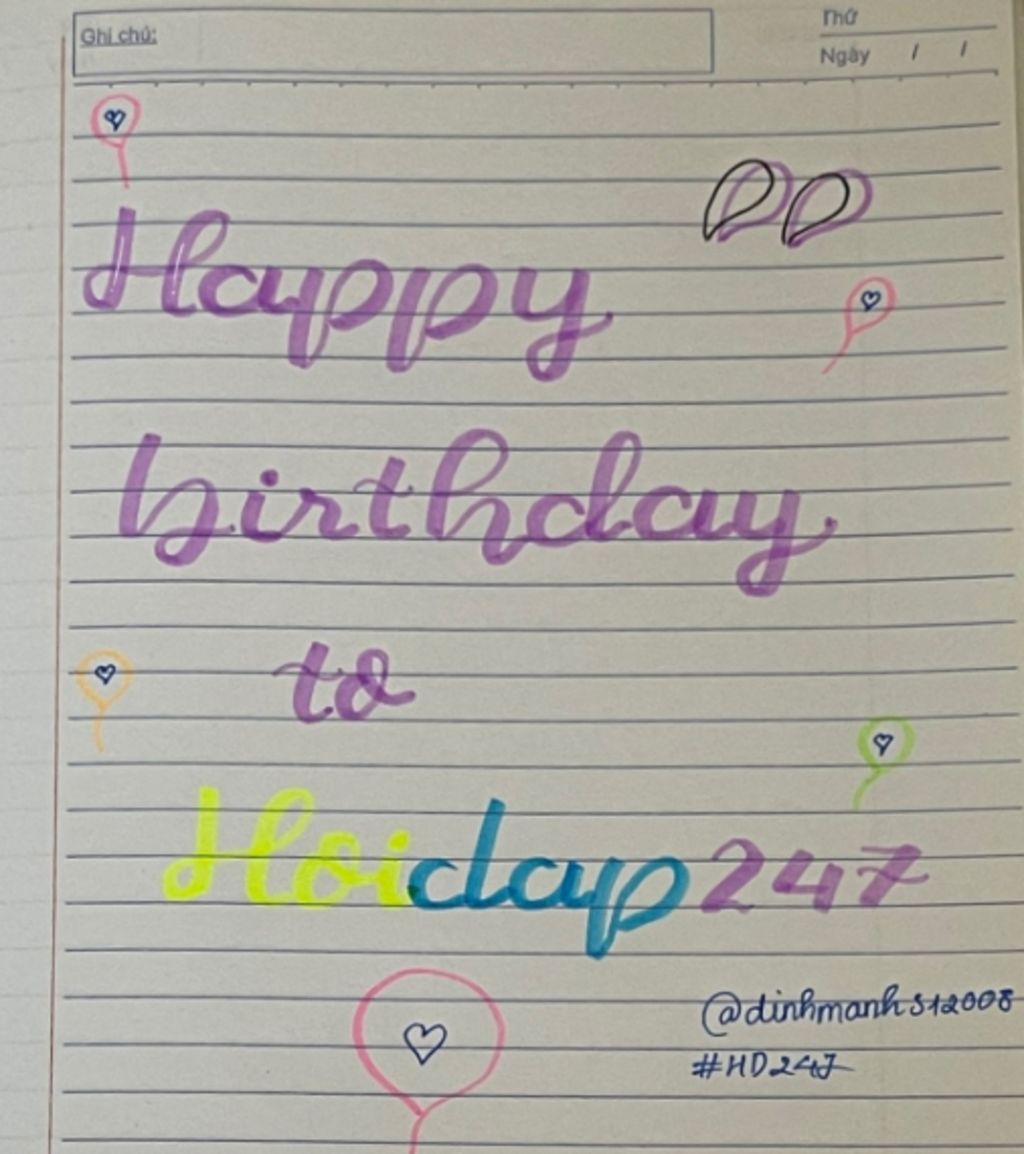 Ghi chú:
Thứ
Ngày / /
Happy
birthday
to
Hoidap247
@dinhmanh512008
#HD247